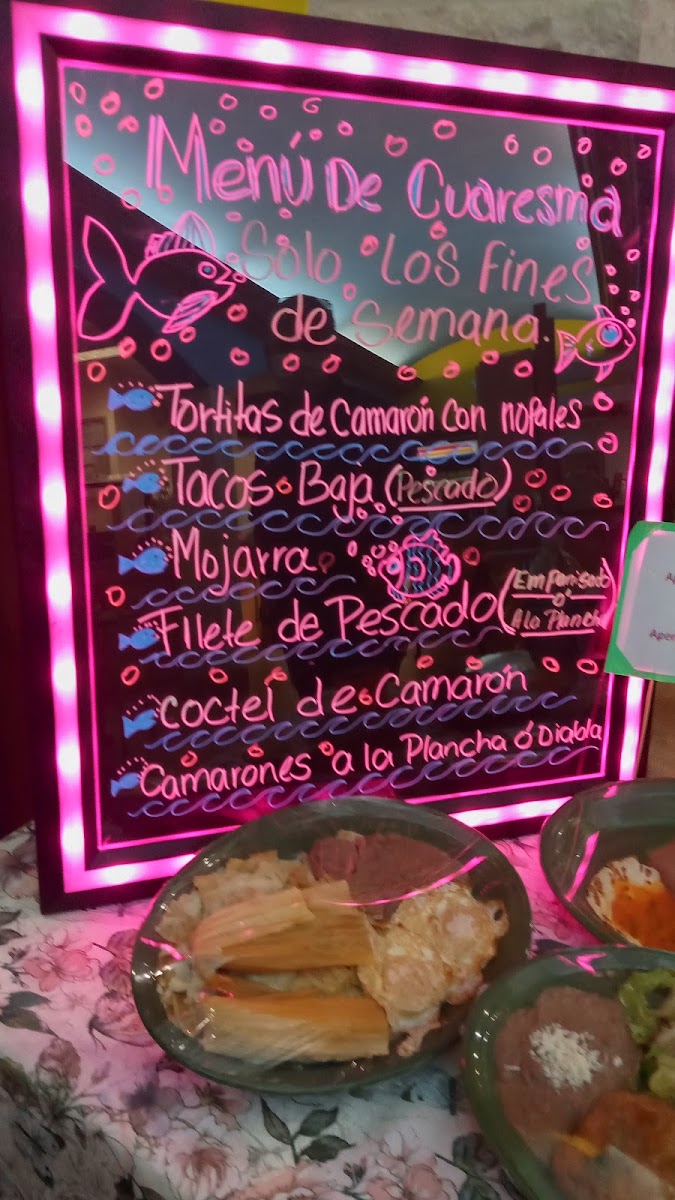 Menú De Cuaresma
Solo Los Fines
de Semana.
Tortitas de Camarón Con nopales
Tacos Baja (Pescado)
Mojarra
Filete de Pescado (Empanisado
o'
A la Plancha)
Coctel de Camarón
Camarones a la Plancha ó Diabla